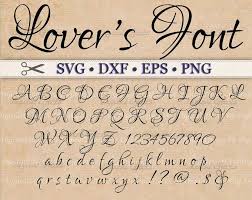 Lover's Font
SVG • DXF • EPS • PNG
A B C D E F G H I J K L
M N O P Q R S T U V
W X Y Z 1234567890
a b c d e f g h i j k l m n o p
q r s t u v w x y z . ! ? @ . , $ &